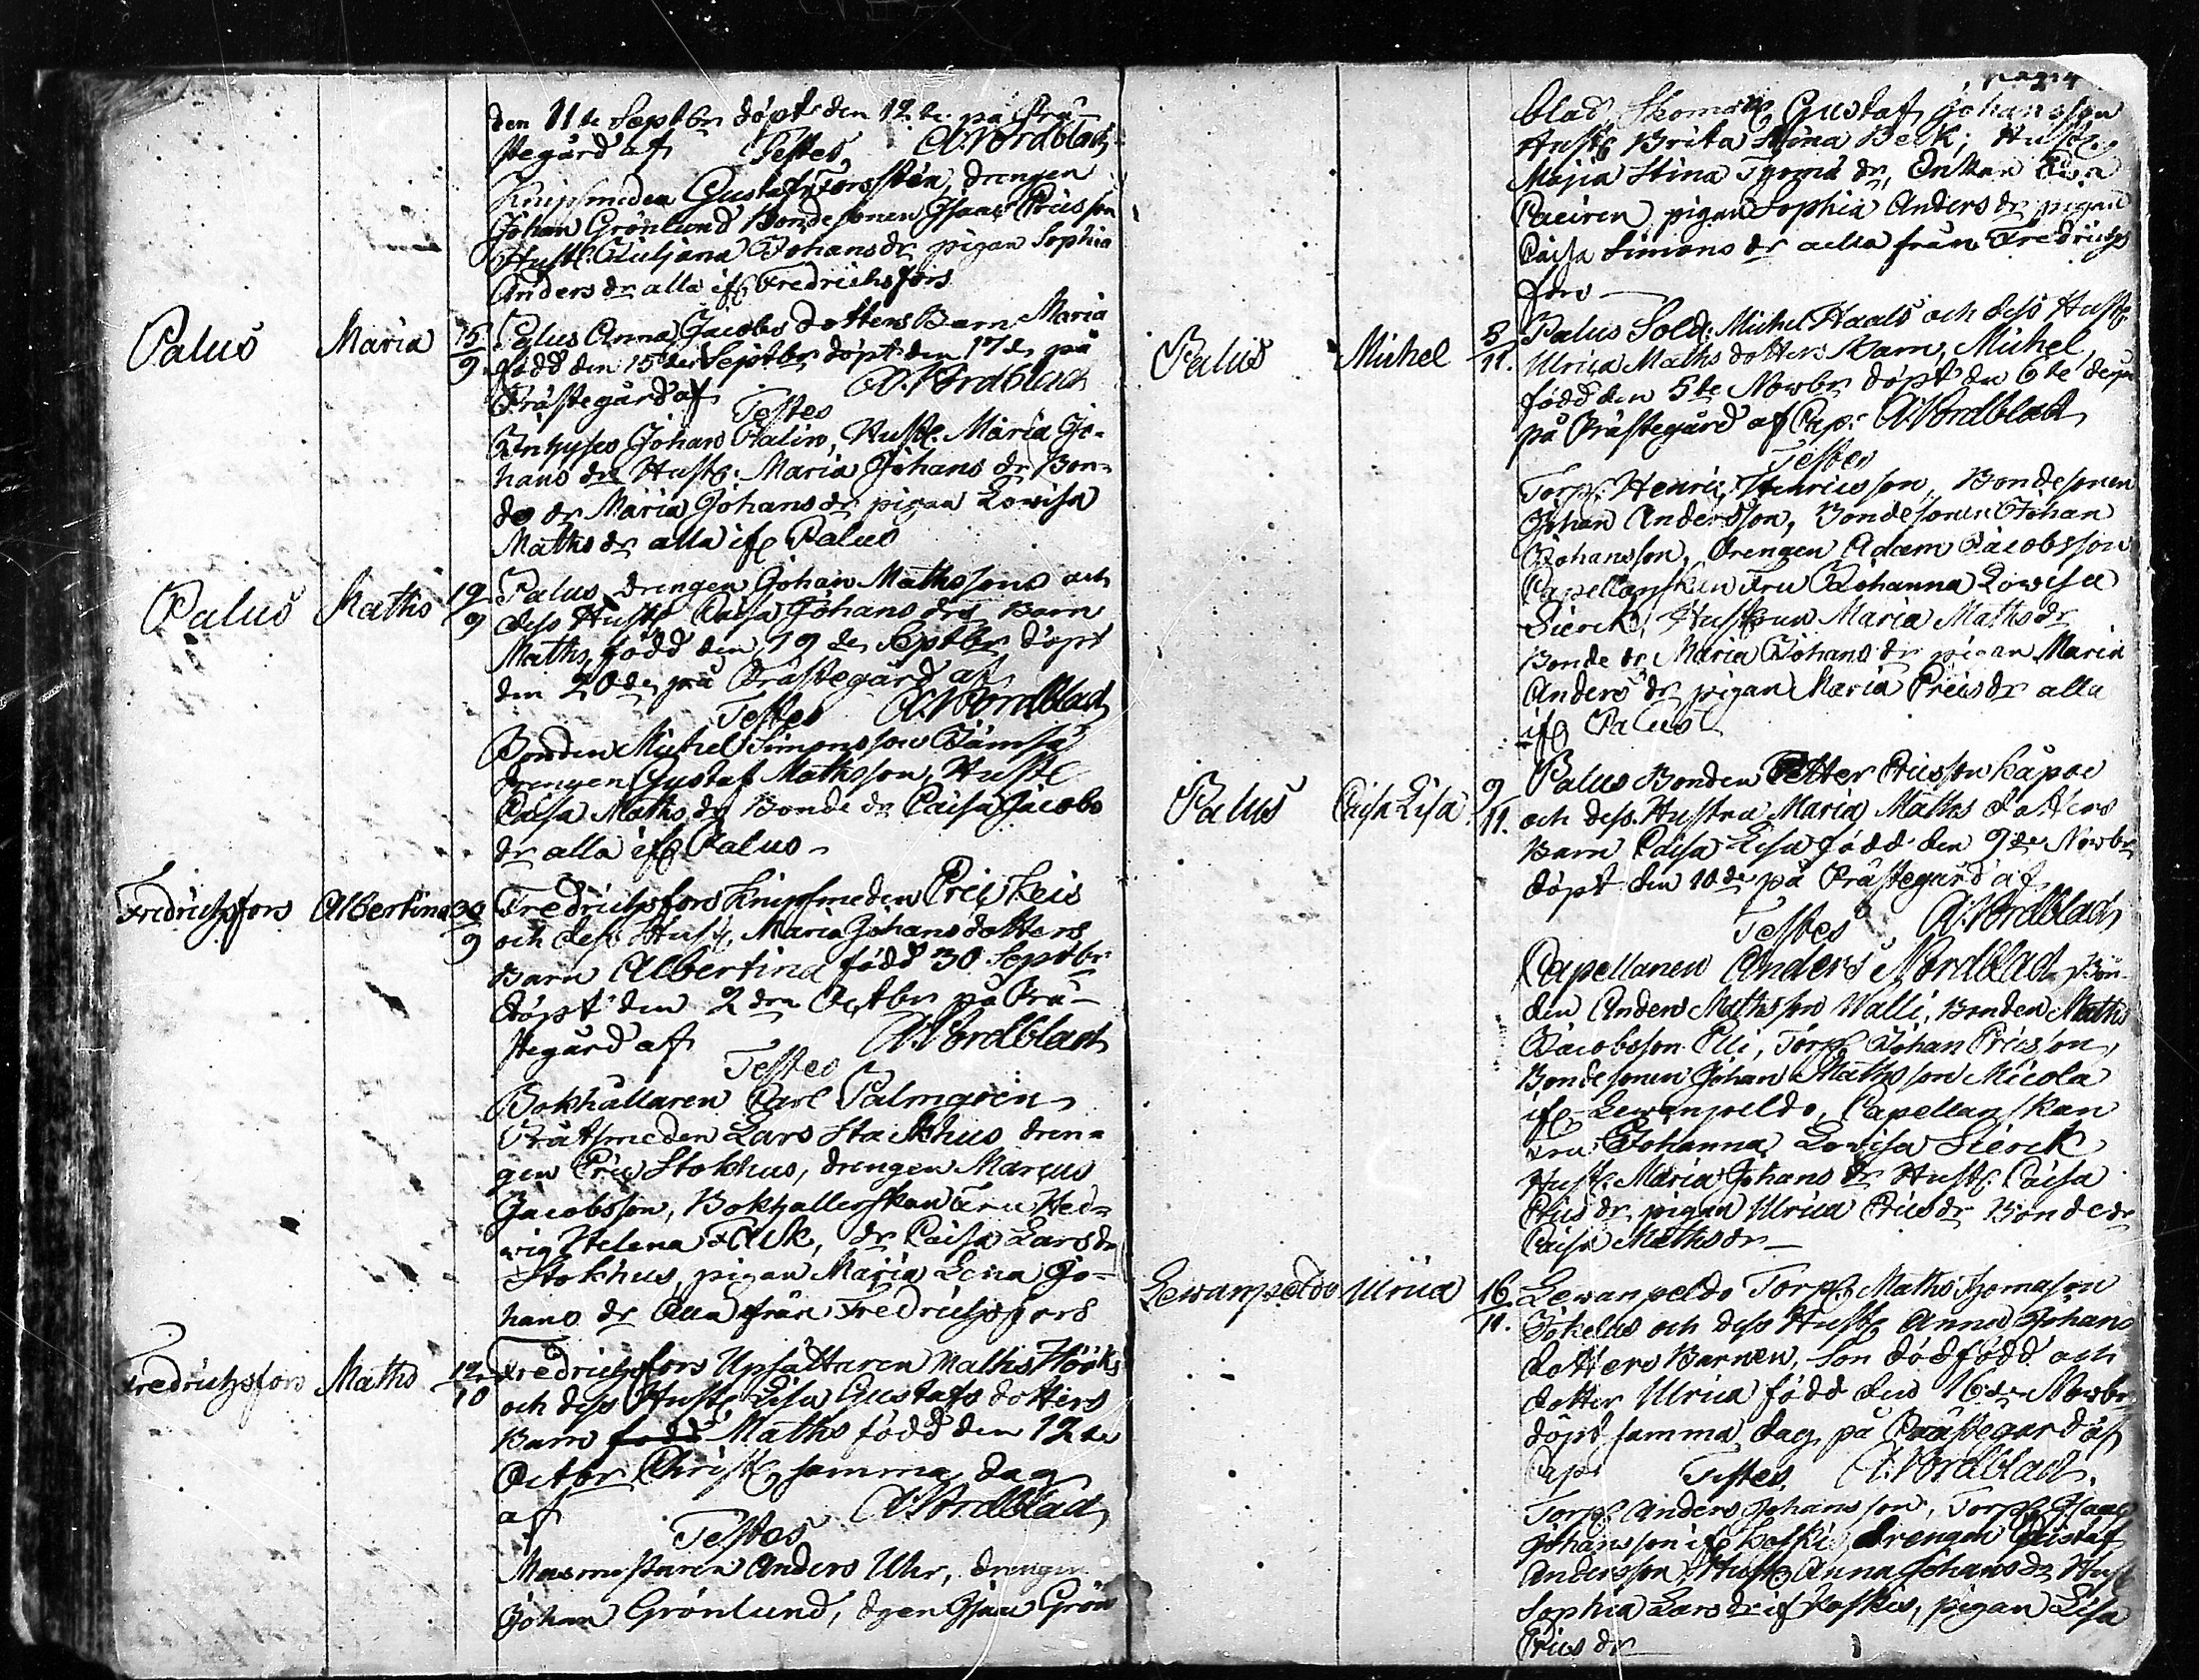 den 11te Septbr döpt den 12te på Prä-
stegård af Testes A. Nordblad
Knipsmeden Gustaf Forsstén, drengen
Johan Grönlund Bondesonen Isaac Ericsson
Hustr. Juliana Johans dr pigan Sophia
Anders dr alla ifr Fredrichsfors
Palus
Maria
15/9
Palus Anna Jacobs dotters Barn Maria
född den 15de Septbr döpt den 17de på
Prästegård af A. Nordblad
Testes
Inhyses Johan Malin, Hustr. Maria Jo-
hans dr Hustr: Maria Johans dr Bon-
de dr Maria Johans dr pigan Lovisa
Maths dr alla ifr Palus
Palus
Maths
19/9
Palus drengen Johan Mathssons och
dess Hustr Caisa Johans drs Barn
Maths, född den 19de Septbr döpt
den 20de på Prästegård af
Testes A. Nordblad
Bonden Michel Simonsson
drengen Gustaf Mathsson, Hustr
Caisa Maths dr Bonde dr Caisa Jacobs
dr alla ifr Palus
Fredrichsfors
Albertina
30/9
Fredrichsfors Knipsmeden Eric Keis
och dess Hustr, Maria Johans dotters
Barn Albertina född 30 Septbr
döpt den 2dra Octbr på Prä-
stegård af A. Nordblad
Testes
Bokhållaren Carl Palmgren
Rätsmeden Lars Stackhus dren-
gen Eric Stokhus, drengen Marcus
Jacobsson, Bokhallerskan Fru Hed-
wig Helena Falk, dr Caisa Lars dr
Stokhus, pigan Maria Lena Jo-
hans dr alla från Fredrichsfors
Fredrichsfors
Maths
12/10
Fredrichsfors Upsättaren Maths Hööks
och dess Hustr Lisa Gustafs dotters
Barn född Maths född den 12te
Octbr Christ, samma dag
af A. Nordblad
Testes
Masmestaren Anders Uhr, drengen
Johan Grönlund, drgen Isaac Grön
blad, Skomak Gustaf Johansson
Hustr Brita Stina Beck, Hustr
Maja Stina Thoma dr, Enkan
pigan Sophia Anders dr pigan
Caisa Simons dr alla från Fredrichs
fors
Palus
Michel
5/11.
Palus Sold: Michel Haals och dess Hustr.
Ulrica Maths dotters Barn, Michel
född den 5te Novbr döpt den 6te derpå
på Prästegård af Cap: A. Nordblad
Testes
Torp. Henric Henricsson, Bondesonen
Johan Andersson, Bondesonen Johan
Johansson, drengen Adam Jacobsson
Capellanskan Fru Johanna Lovisa
Sierck, Hustrun Maria Maths dr
Bonde dr Maria Johans dr pigan Maria
Anders dr pigan Maria Erics dr alla
ifr Palus
Palus
Caisa Lisa
9/11.
Palus Bonden Petter Ericsson Kåpoe
och dess Hustru Maria Maths dotters
Barn Caisa Lisa född den 9de Novbr
döpt den 10de på Prästegård af
Testes A. Nordblad
Capellanen Anders Nordblad, Bon-
den Anders Mathsson Walli, Bonden Maths
Jacobsson Elli, Torp Johan Ericsson,
Bondesonen Johan Mathsson Micola
ifr Lewanpeldo, Capellanskan
Fru Johanna Lovisa Sierck
Hustr. Maria Johans dr Hustr. Caisa
Erics dr pigan Ulrica Erics dr Bonde dr
Caisa Maths dr
Lewanpeldo
Ulrica
16/11.
Lewanpeldo Torp. Maths Thomasson
Jokelas och dess Hustr Anna Johans
dotters Barnen, Son dödfödd och
dotter Ulrica född den 16de Novbr
döpt samma dag på Prästegård af
Cap: Testes, A. Nordblad
Torp Anders Johansson, Torp. Isaac
Johansson ifr Koski, drengen Gustaf
Andersson, Hustr Anna Johans dr, Hust
Sophia Lars dr if Koskis, pigan Lisa
Erics dr